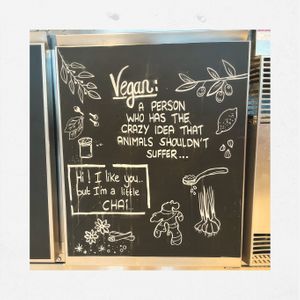 Vegan:
A PERSON
WHO HAS THE
CRAZY IDEA THAT
ANIMALS SHOULDN'T
SUFFER...
Hi! I like you..
but I'm a little
CHAI..